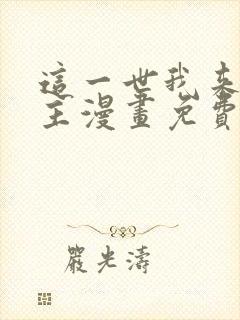 這一世我来
主漫畫免費
嚴光濤